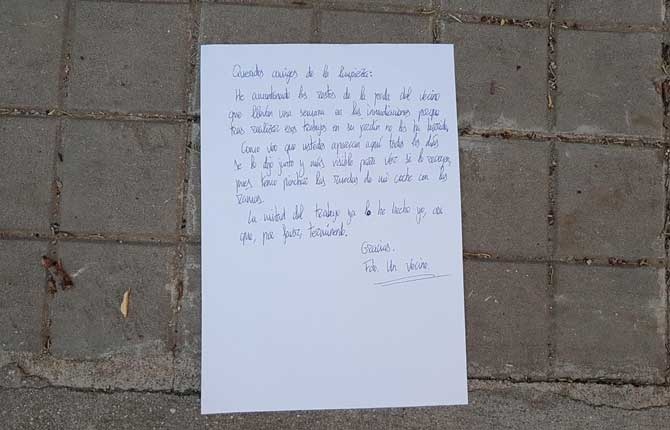 Queridos amigos de la limpieza:
He amontonado los restos de la poda del vecino
que llevan una semana en las inmediaciones porque
tras realizar esos trabajos en su jardín no los ha barrido.
Como veo que ustedes aparecen aquí todos los días
se lo dejo junto y más visible para ver si lo recogen,
pues temo pinchar las ruedas de mi coche con las
ramas.
La mitad del trabajo ya lo he hecho yo, así
que, por favor, termínenlo.
Gracias.
Fdo. Un vecino.